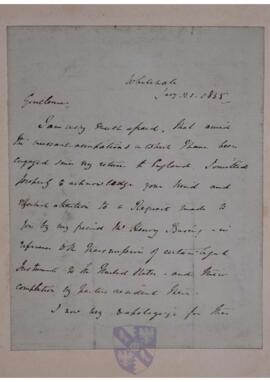 Whitehall
Jany 21. 1835
Gentlemen,
I am very much afraid, that amid
the incessant occupations in which I have been
engaged since my return to England I omitted
properly to acknowledge your kind and
attention to a Request made to
you by my friend Mr Henry Baring - in
reference to the transmission of certain legal
Instruments to the United States - and their
completion by parties resident there.
I now beg to apologize for this